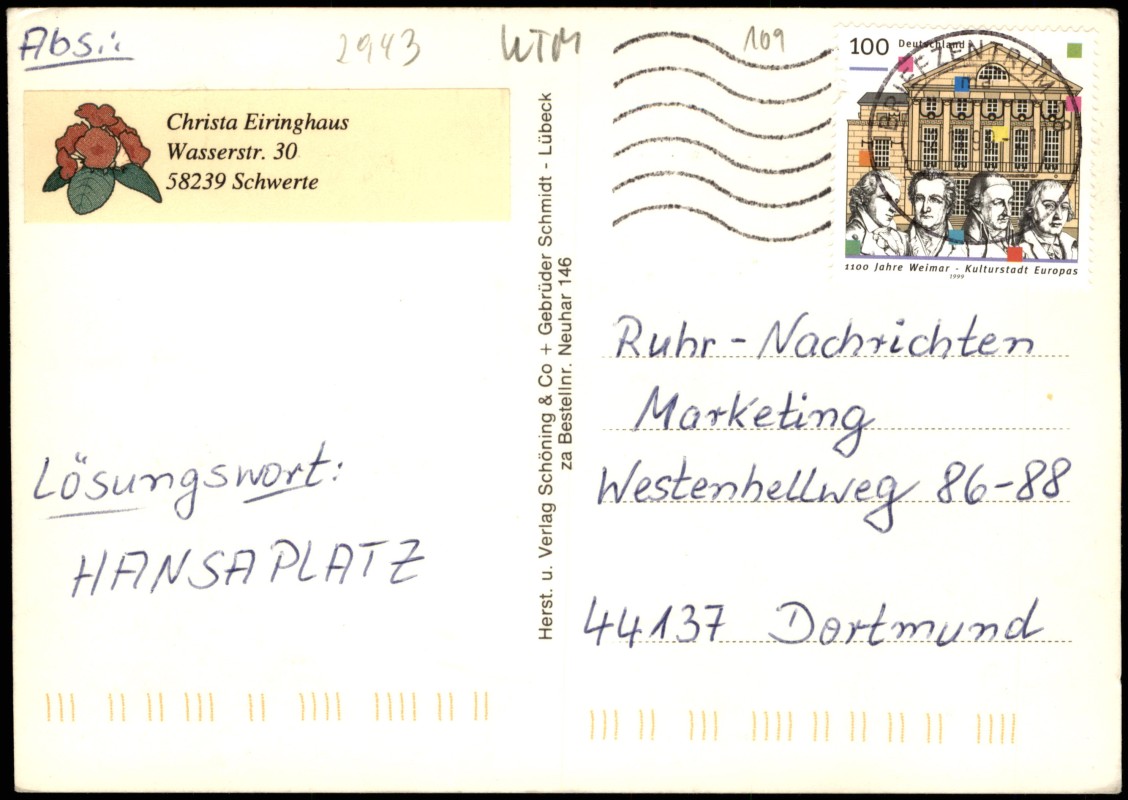 Abs.:
2943
WTM
109
Christa Eiringhaus
Wasserstr. 30
58239 Schwerte
Lösungswort:
HANSAPLATZ
Herst. u. Verlag Schöning & Co + Gebrüder Schmidt - Lübeck
za Bestellnr. Neuhar 146
100 Deutschland
BRIEFZENTRUM
1100 Jahre Weimar - Kulturstadt Europas
1999
Ruhr-Nachrichten
Marketing
Westenhellweg 86-88
44137 Dortmund